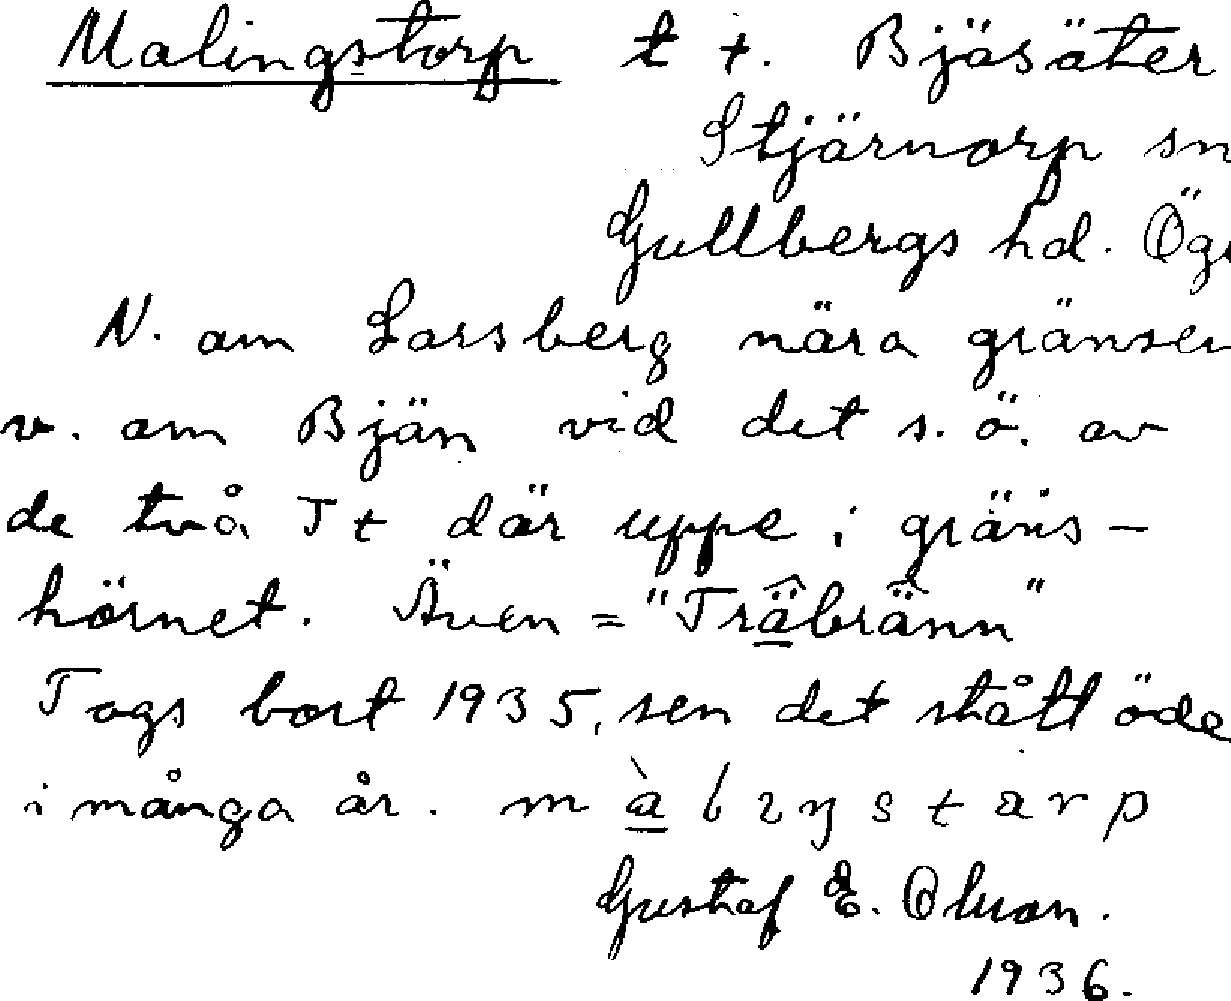 Malingstorp t +. Bjäsäter
Stjärnorp sn
Gullbergs hd. Ög
N. om Larsberg nära gränsen
v. om Bjän vid det s. ö. av
de två Tt där uppe i gräns-
hörnet. Även = "Träbränn"
Togs bort 1935, sen det stått öde
i många år. m
Gustaf E. Olson.
1936.